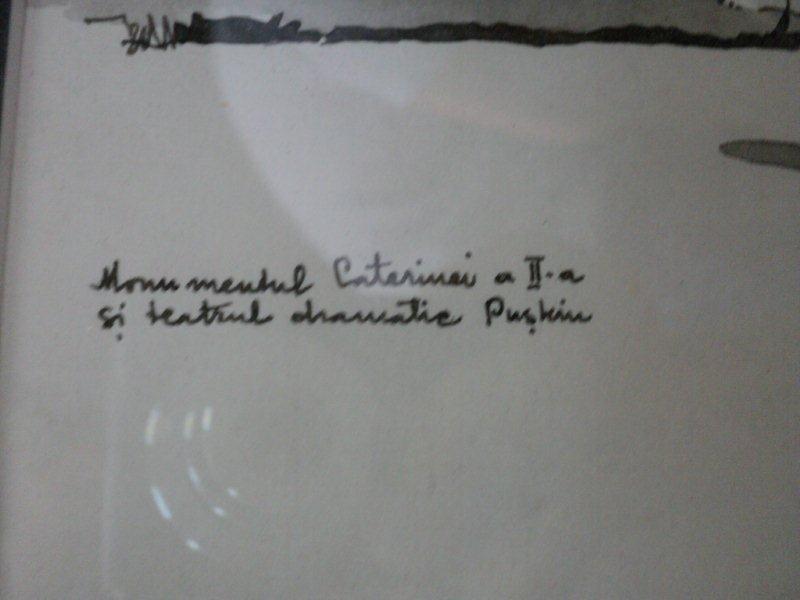 Monumentul Caterinei a II-a
și teatrul dramatic Pușkin